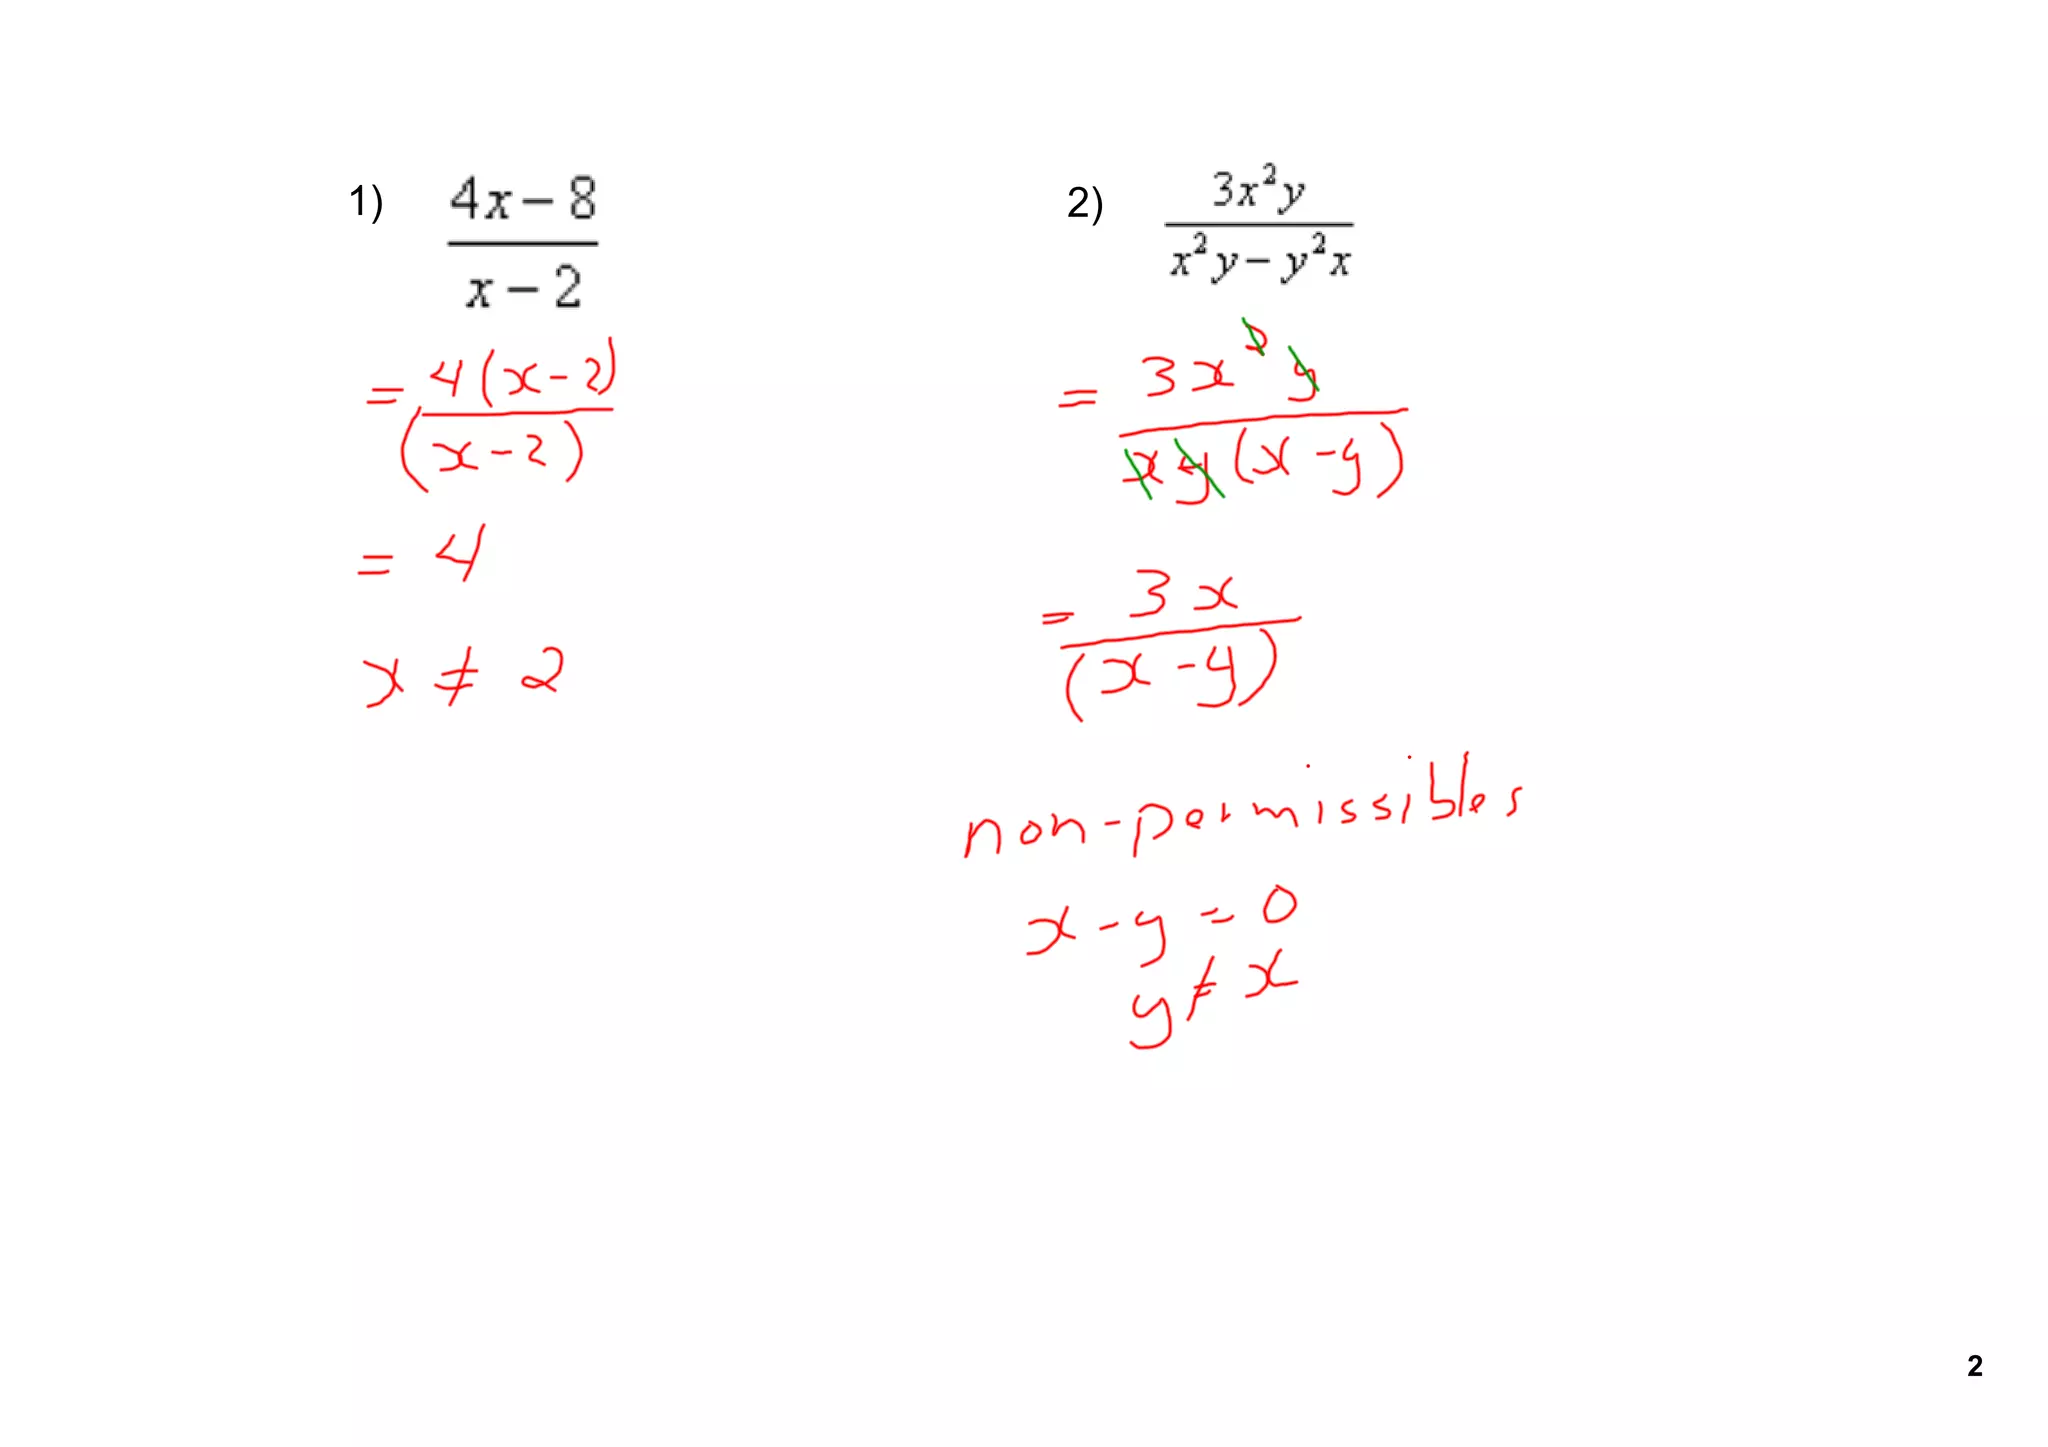 1) (4x - 8)/(x - 2)
= 4(x - 2)/(x - 2)
= 4
x ≠ 2
2) 3x²y/(x²y - y²x)
= 3x²y/(xy(x - y))
= 3x/(x - y)
non-permissibles
x - y = 0
y ≠ x
2